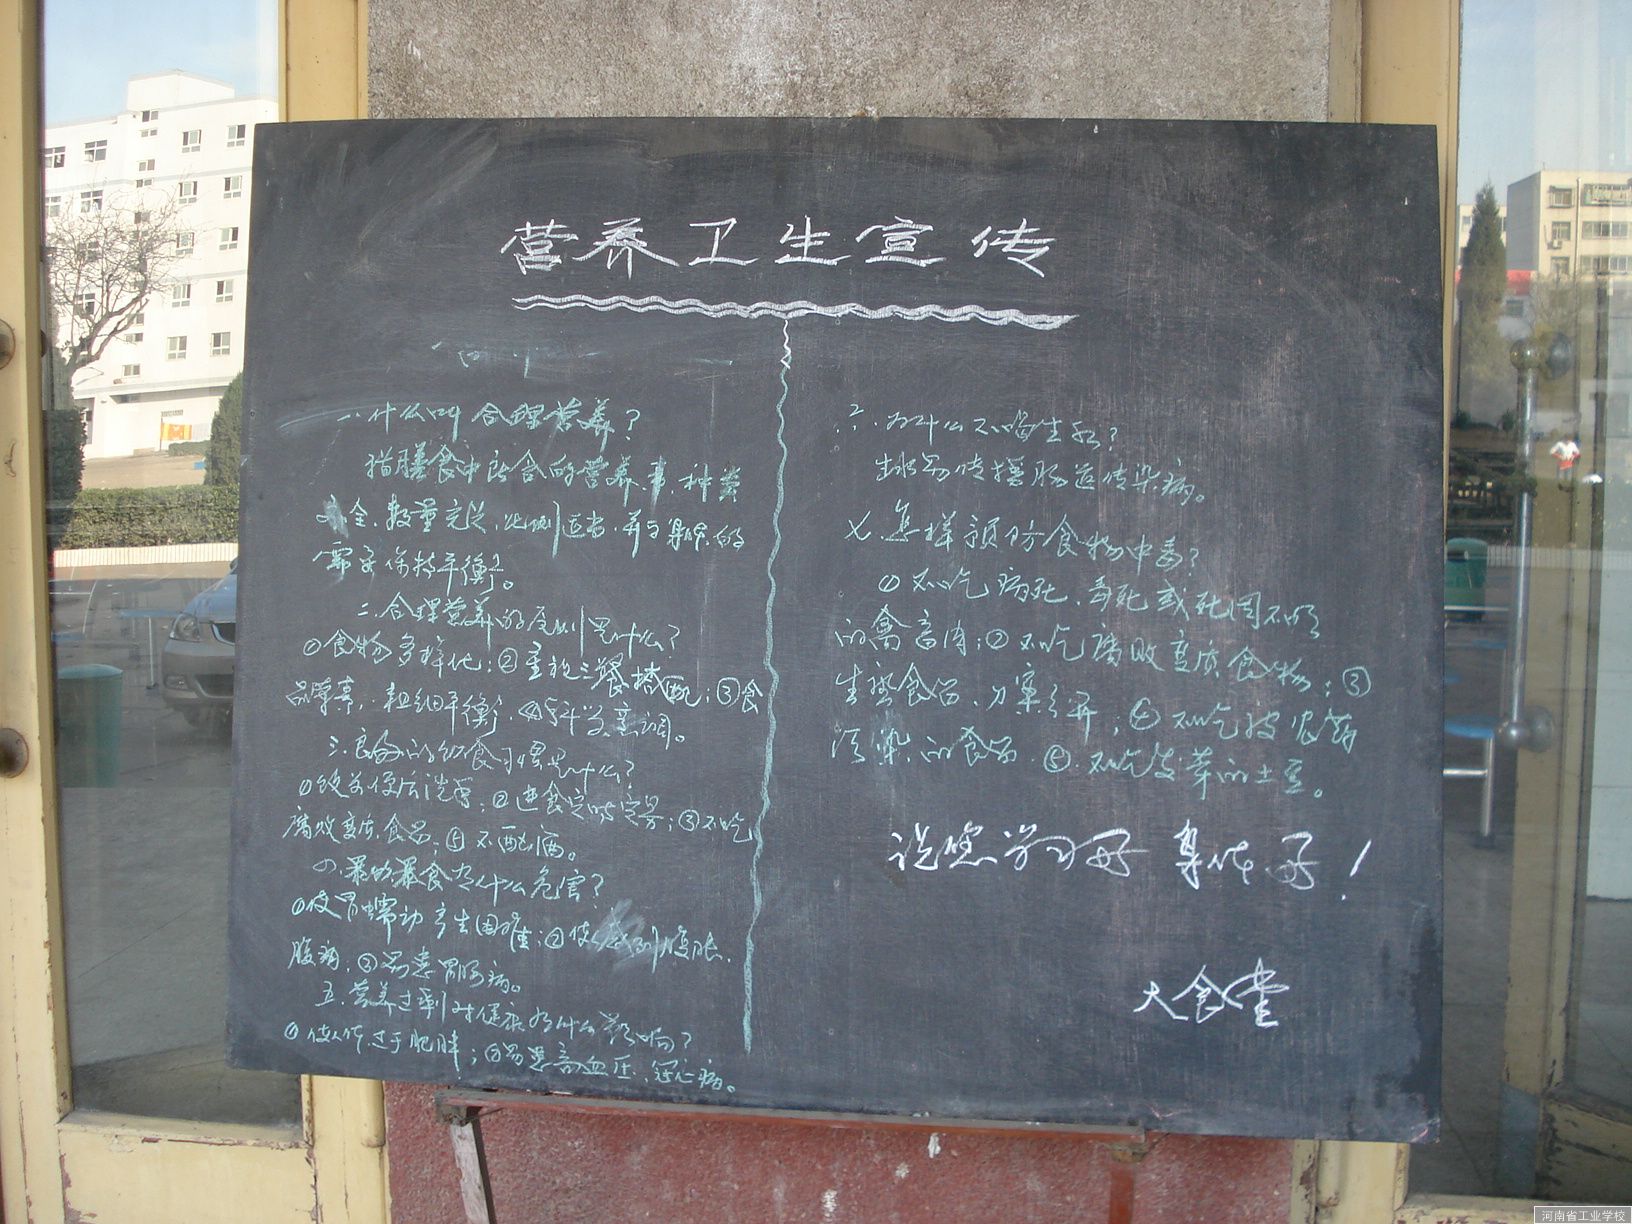 营养卫生宣传
一.什么叫合理营养?
指膳食中所含的营养素,种类
全,数量充足,比例适当,并与身体的
需要保持平衡。
二.合理营养的原则是什么?
①食物多样化;②重视三餐搭配;③食
品荤素,粗细平衡,④科学烹调。
三.良好的饮食习惯是什么?
①饭前便后洗手,②进食定时定量;③不吃
腐败变质食品,⑤不酗酒。
四.暴饮暴食有什么危害?
①使胃蠕动产生困难;②使人感到腹胀,
腹痛,③易患胃肠病。
五.营养过剩对健康有什么影响?
①使人体过于肥胖;②易患高血压,冠心病。
六.为什么不喝生水?
生水易传播肠道传染病。
七.怎样预防食物中毒?
①不吃病死,毒死或死因不明
的禽畜肉;②不吃腐败变质食物;③
生熟食品,刀案分开;④不吃被农药
污染的食品.⑤.不吃发芽的土豆。
祝您学习好 身体好!
大食堂
河南省工业学校